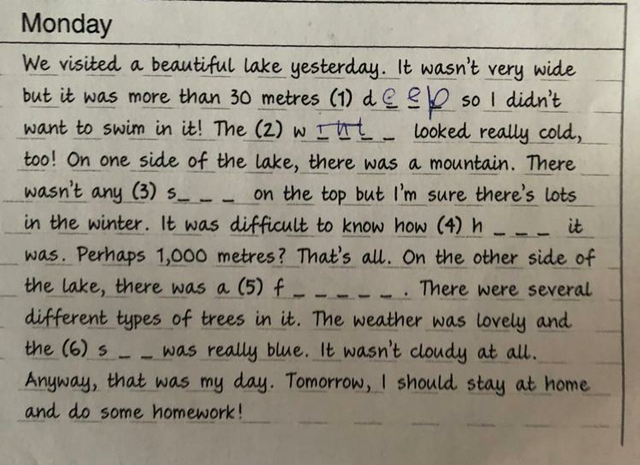 Monday
We visited a beautiful lake yesterday. It wasn't very wide
but it was more than 30 metres (1) deep so I didn't
want to swim in it! The (2) w _ _ _ _ looked really cold,
too! On one side of the lake, there was a mountain. There
wasn't any (3) s_ _ _ on the top but I'm sure there's lots
in the winter. It was difficult to know how (4) h _ _ _ it
was. Perhaps 1,000 metres? That's all. On the other side of
the lake, there was a (5) f _ _ _ _ _ . There were several
different types of trees in it. The weather was lovely and
the (6) s _ _ was really blue. It wasn't cloudy at all.
Anyway, that was my day. Tomorrow, I should stay at home
and do some homework!